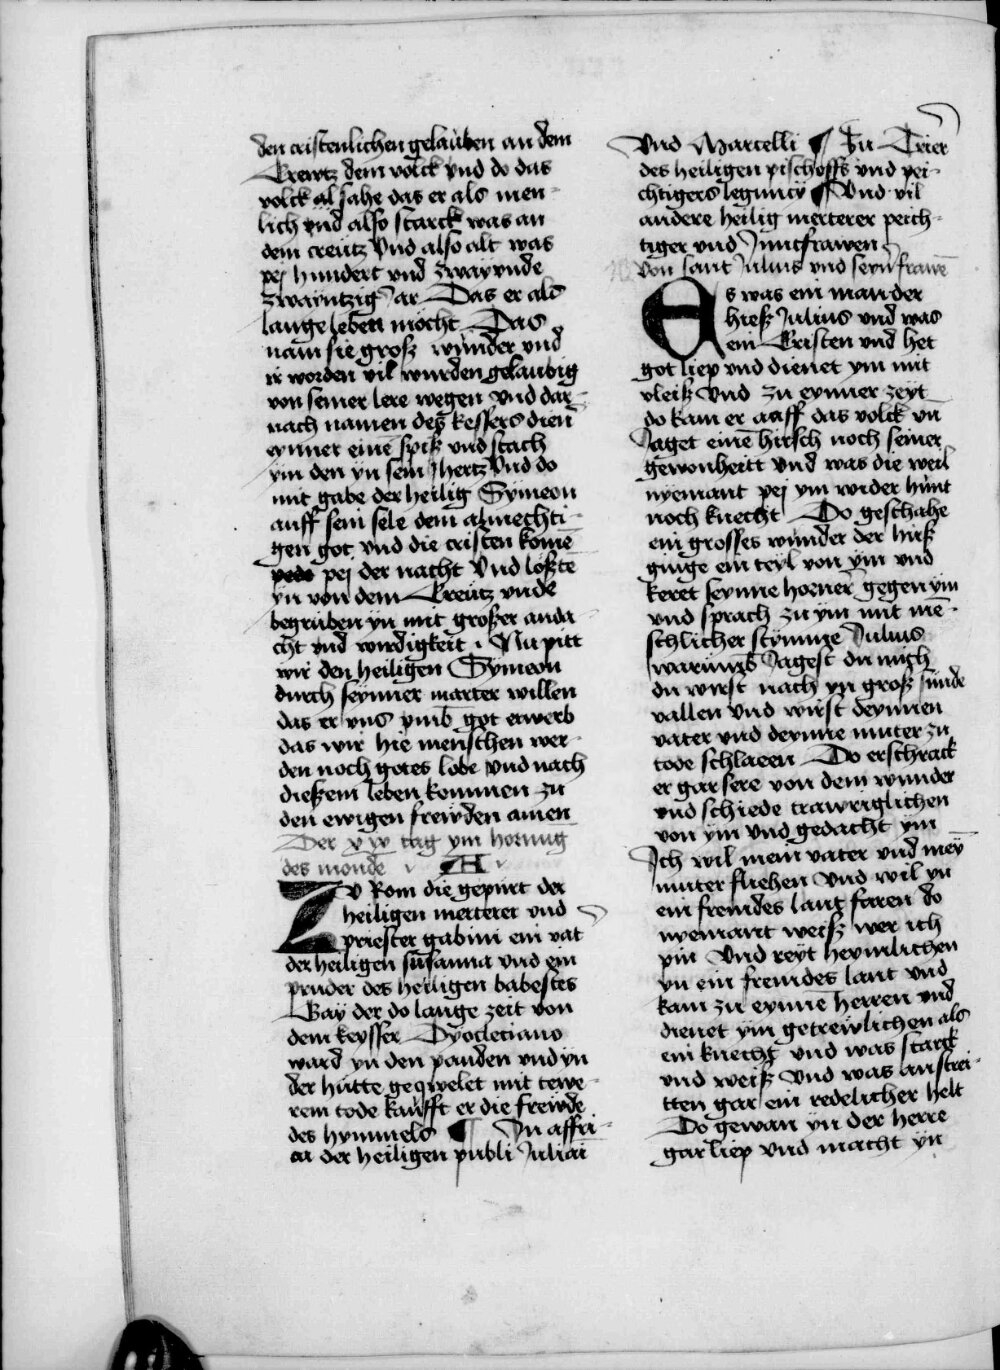 den cristenlichen gelauben an dem
Crewtz dem volck vnd do das
volck al sahe das er als men-
lich vnd also starck was an
dem creutz Vnd also alt was
pej hundert vnd zwayunde
zwayntzig Jar Das er als
lange leben mocht Das
nam sie groß wunder vnd
ir worden vil wurden gelaubig
von seiner lere wegen vnd dar-
nach namen des kessers dien
eynner eine spiß vnd stach
ym den yn sein hertz Vnd do
mit gabe der heilig Symeon
auff sein sele dem almechti-
gen got vnd die cristen kome
pej der nacht Vnd loßte
yn von dem Creutz vnde
begruben yn mit großer anda
cht vnd wirdigkeit . Nu pitt
wir den heiligen Symeon
durch seynner marter willen
das er vns vmb got erwerb
das wir hie menschen wer-
den noch gotes lobe Vnd nach
dießem leben kommen zu
den ewigen frewden amen
Der xix tag ym hornug
des monds A
Zv Rom die gepurt der
heiligen merterer vnd
priester gabini ein vat
der heiligen susanna vnd ein
pruder des heiligen babestes
Gay der do lange zeit von
dem keysser Dyocletiano
ward yn den panden vnd yn
der hutte geqwelet mit tewe-
rem tode kaufft er die frewde
des hymmels ¶ In affri-
ca der heiligen publi Juliai
Vnd Marcelli ¶ Zu Trier
des heiligen pischoffs vnd pei-
chtigers leguncij ¶ Vnd vil
andere heilig merterer peich-
tiger vnd Junckfrawen
Von sant Julius vnd seyn frawe
Es was ein man der
hieß Julius vnd was
ein Cristen vnd het
got liep vnd dienet ym mit
vleiß Vnd zu eynner zeyt
do kam er auff das volck vn
Jaget eine hirsch noch seiner
gewonheitt vnd was die weil
nyemant pej ym wider hunt
noch knecht Do geschahe
ein grosses wunder der hirß
ginge ein teyl von ym vnd
keret seynne hoerner gegen ym
vnd sprach zu ym mit me-
schlicher stymme Julius
warumb Jagest du mich
du wirst nach yn groß sunde
vallen Vnd wirst deynnen
vater vnd deynne muter zu
tode schlaeen Do erschrack
er gar sere von dem wunder
vnd schiede trawriglichen
von ym vnd gedacht ym
Ich wil mein vater vnd mey
muter fliehen Vnd wil yn
ein fremdes lant faren do
nyemant weiß wer ich
pin Vnd reyt heymlichen
yn ein fremdes lant vnd
kam zu eynne herren vnd
dienet ym getrewlichen als
ein knecht vnd was starck
vnd weiß Vnd was an strei-
tten gar ein redelicher helt
Do gewan yn der herre
gar liep vnd macht yn